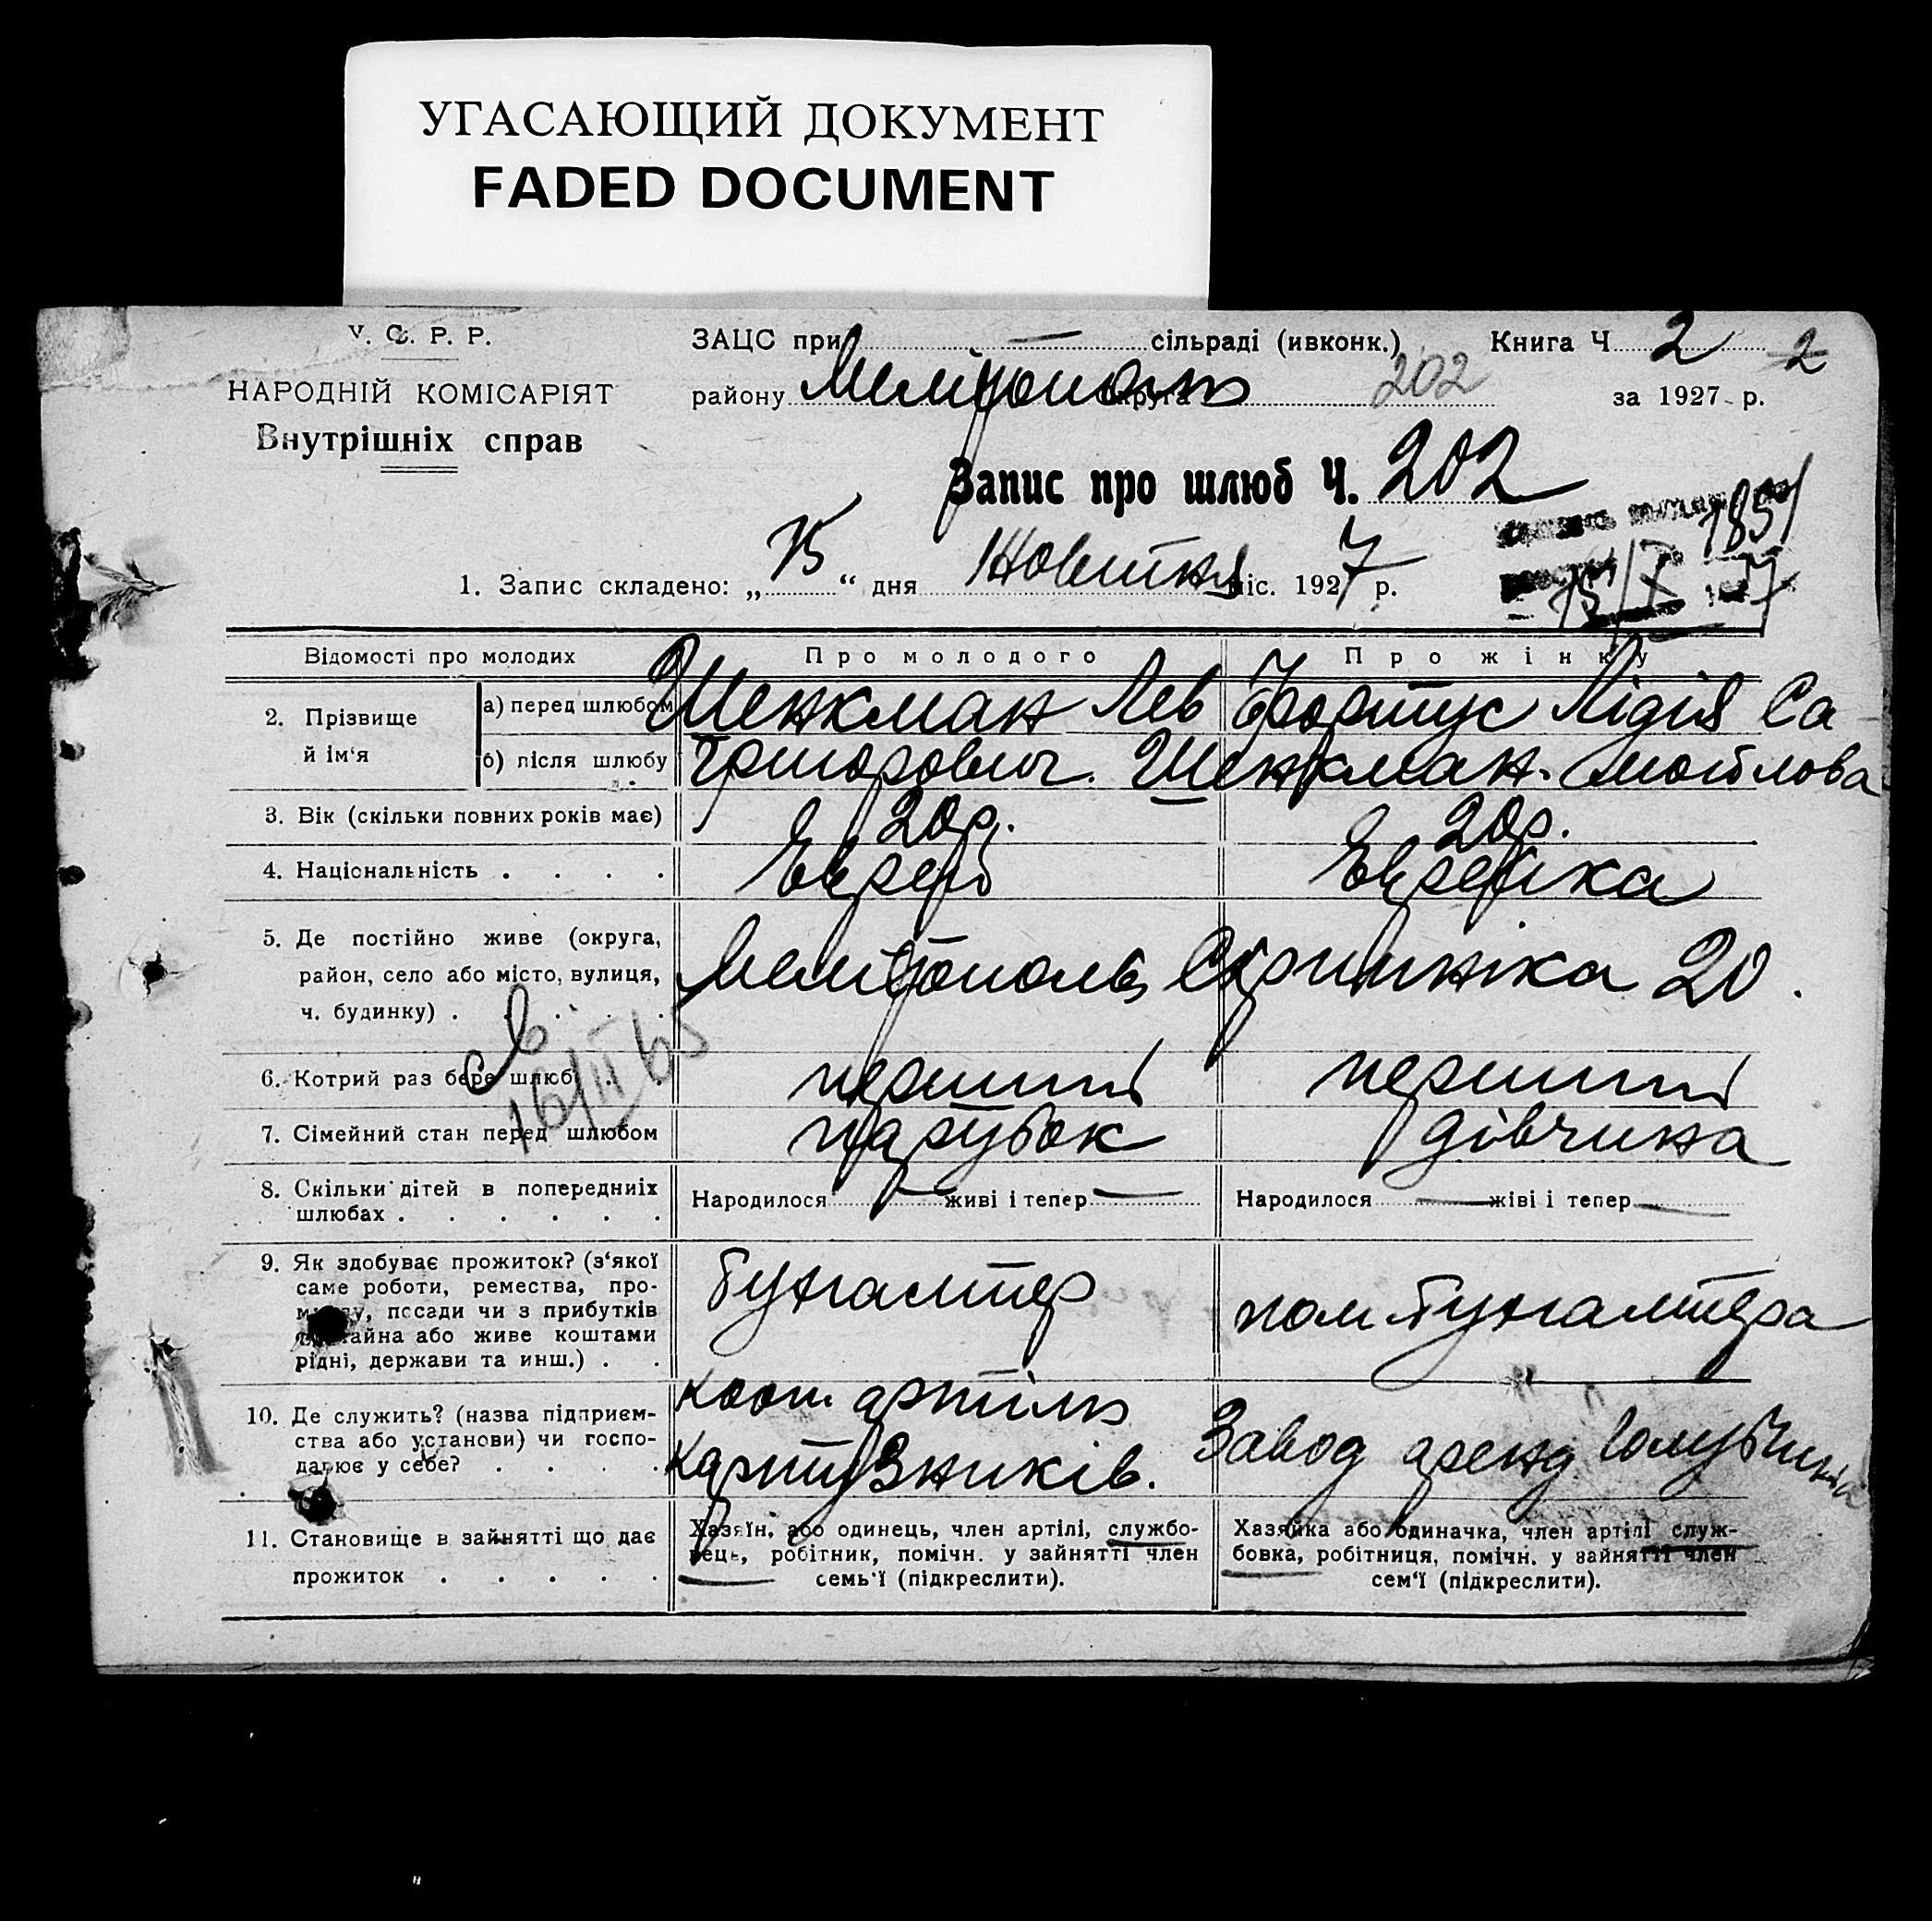 УГАСАЮЩИЙ ДОКУМЕНТ
FADED DOCUMENT
У. С. Р. Р.
НАРОДНІЙ КОМІСАРІЯТ
Внутрішніх справ
ЗАЦС при — сільраді (ивконк.) Книга Ч 2 2
району Мелітополь округа 202 за 1927 р.
Запис про шлюб Ч. 202
1851
15/X 27
1. Запис складено: „ 15 “ дня Жовтня міс. 1927 р.
Відомості про молодих Про молодого Про жінку
2. Прізвище й ім‘я
а) перед шлюбом Шенкман Лев Фортус Лідія Са
б) після шлюбу Григорович. Шенкман. мойлова
3. Вік (скільки повних років має) 20р. 20р.
4. Національність . . . . Еврей Еврейка
5. Де постійно живе (округа,
район, село або місто, вулиця, Мелітополь Скрипніка 20.
ч. будинку) . . . . .
6. Котрий раз бере шлюб . перший перший
16/II 65
7. Сімейний стан перед шлюбом парубок дівчина
8. Скільки дітей в попередниіх
шлюбах . . . . . . Народилося — живі і тепер — Народилося — жіві і тепер —
9. Як здобуває прожиток? (з‘якої
саме роботи, ремества, про- бухгалтер
мислу, посади чи з прибутків пом бухгалтера
айна або живе коштами
рідні, держави та инш.) . .
10. Де служить? (назва підприєм- кооп. артіль
ства або установи) чи госпо- Завод аренд.
дарює у себе? . . . . картузників.
11. Становище в зайнятті що дає
прожиток . . . . .
Хазяїн, або одинець, член артілі, службо-
вець, робітник, помічн. у зайнятті член
семь‘ї (підкреслити).
Хазяйка або одиначка, член артілі служ-
бовка, робітниця, помічн. у зайнятті член
сем‘ї (підкреслити).